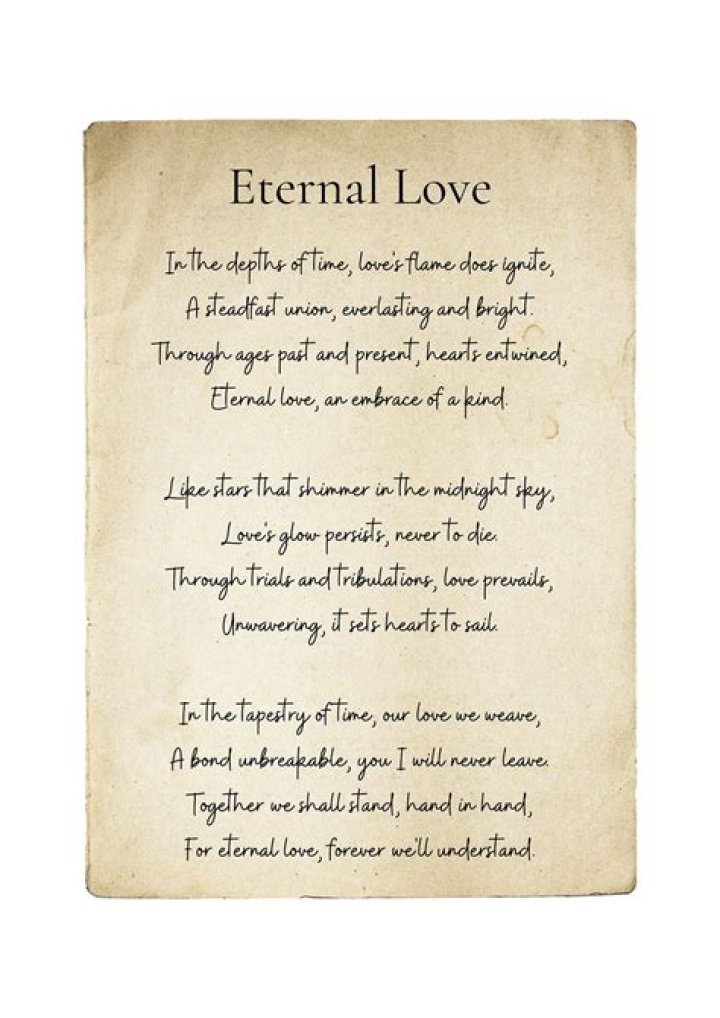 Eternal Love
In the depths of time, love's flame does ignite,
A steadfast union, everlasting and bright.
Through ages past and present, hearts entwined,
Eternal love, an embrace of a kind.
Like stars that shimmer in the midnight sky,
Love's glow persists, never to die.
Through trials and tribulations, love prevails,
Unwavering, it sets hearts to sail.
In the tapestry of time, our love we weave,
A bond unbreakable, you I will never leave.
Together we shall stand, hand in hand,
For eternal love, forever we'll understand.